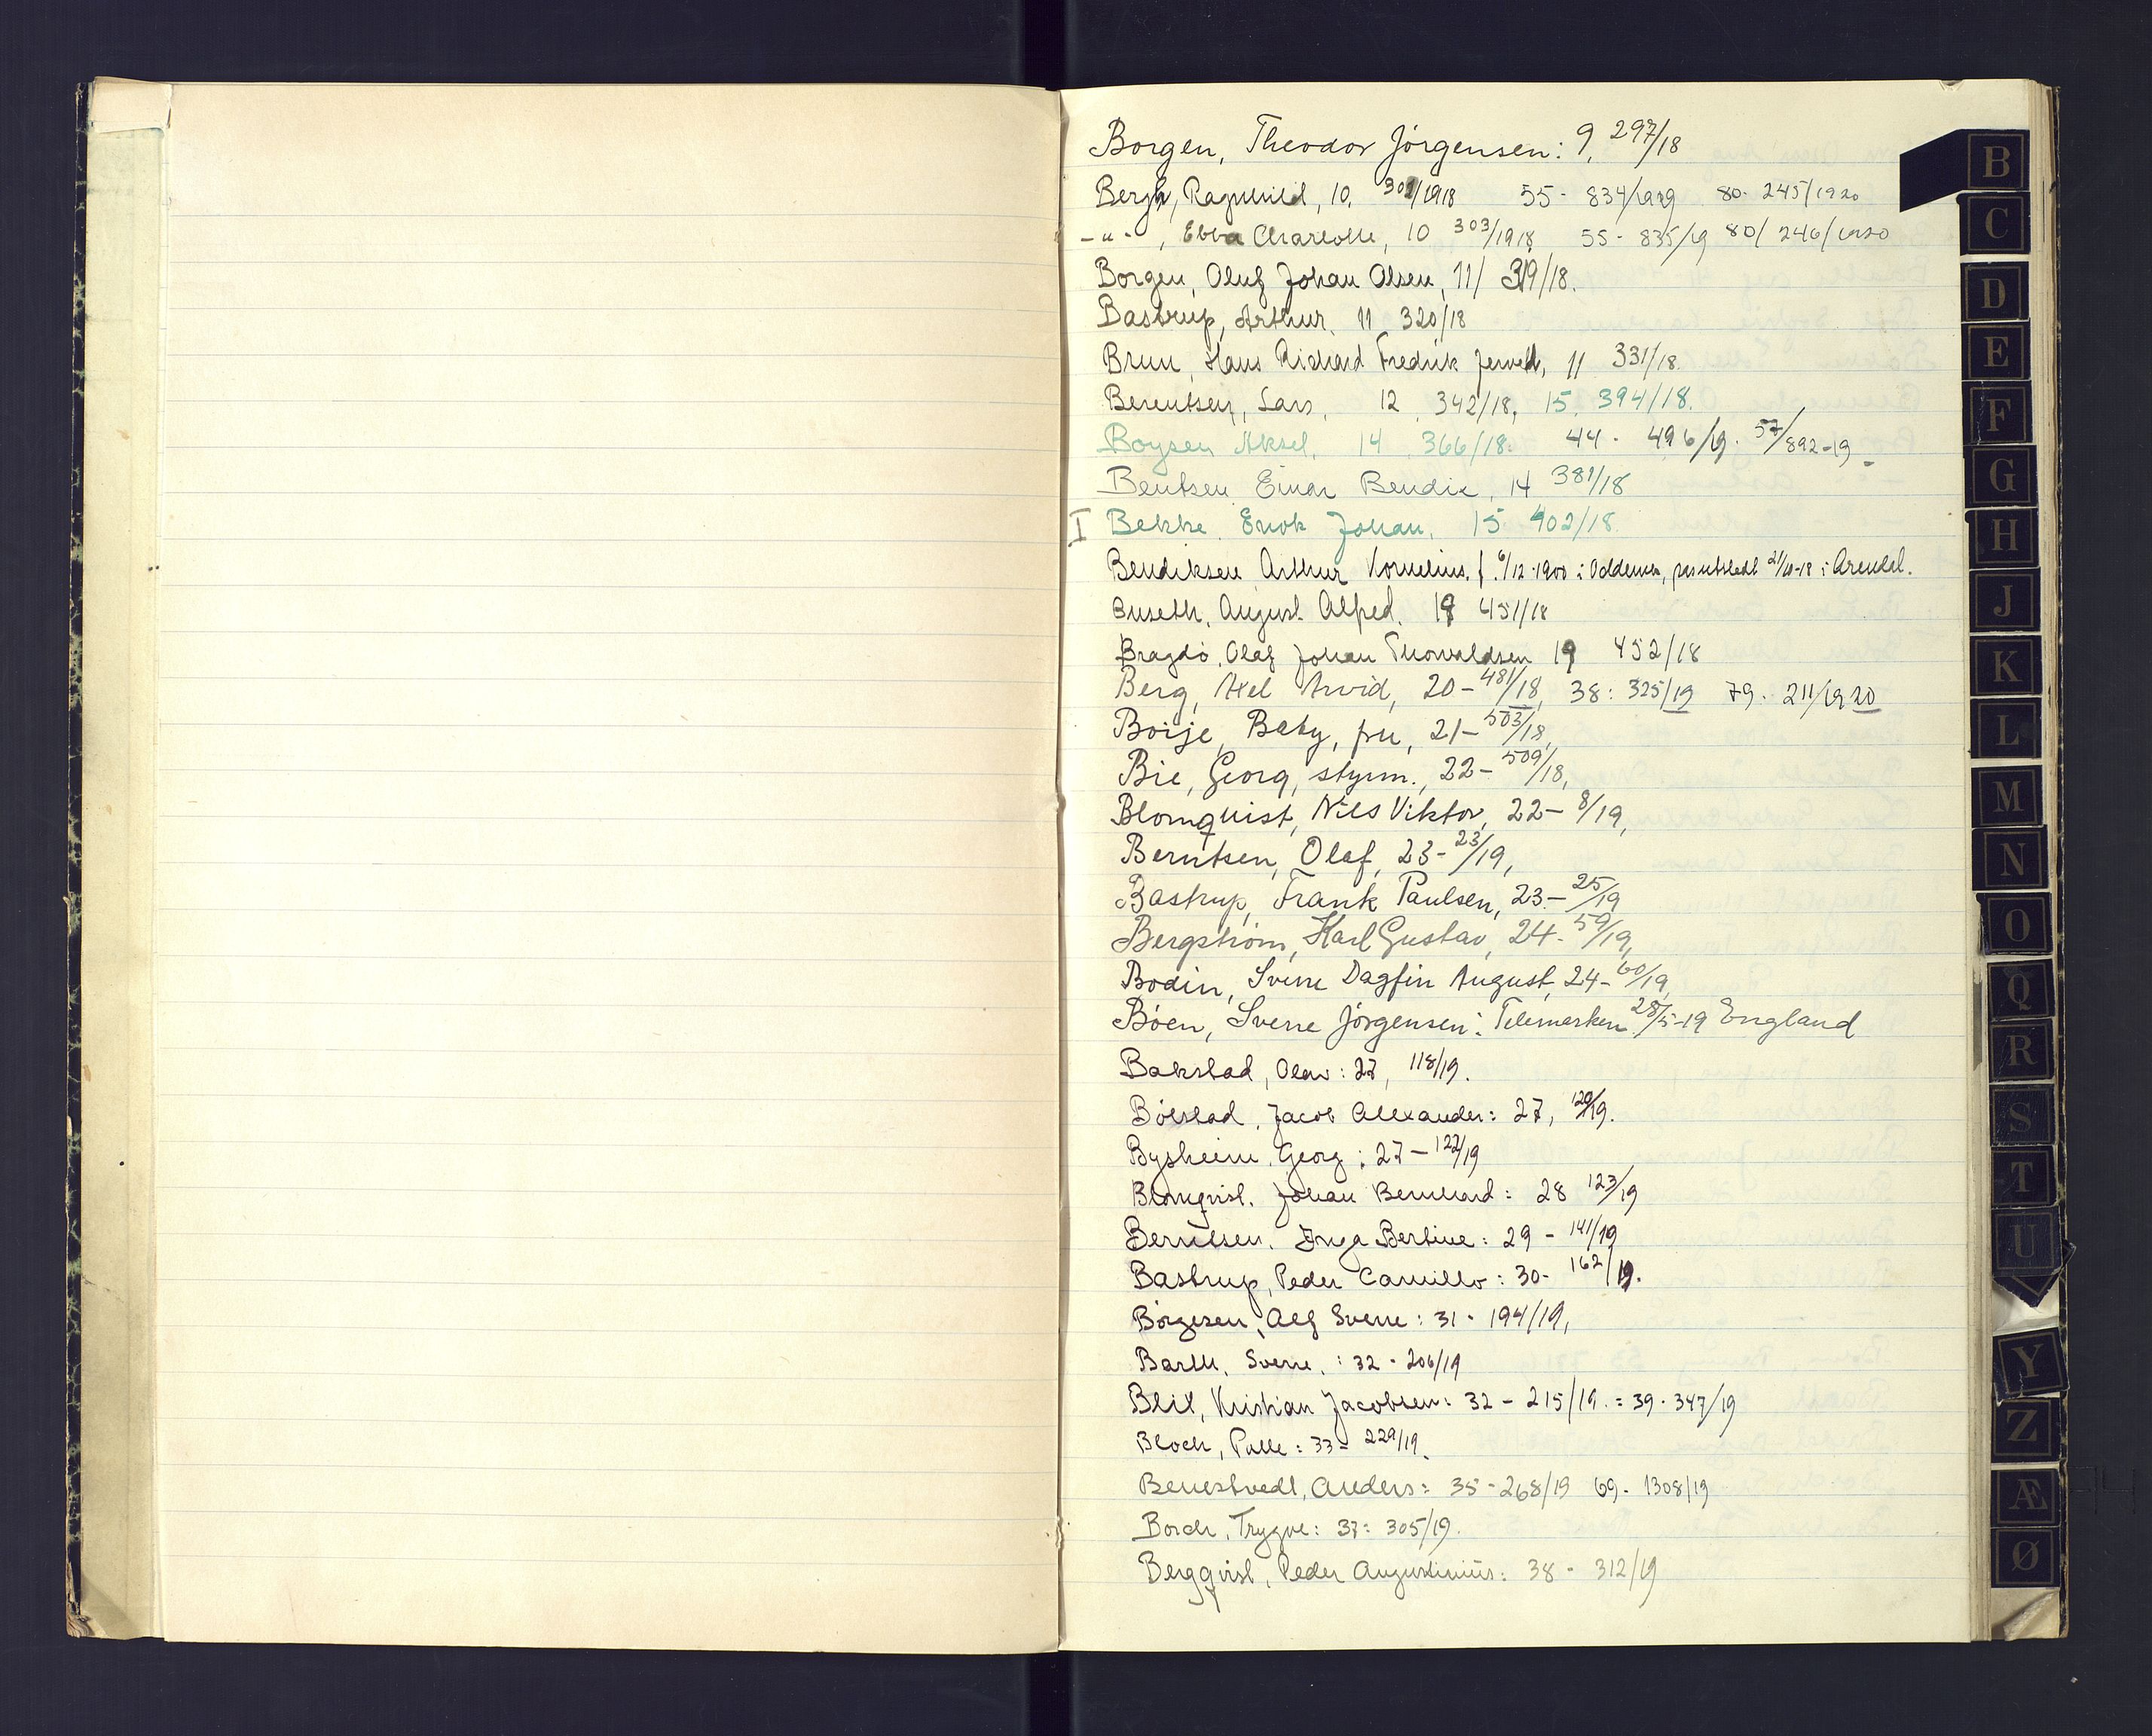 Borgen, Theodor Jörgensen: 9, 297/18
Bergh, Ragnhild, 10, 302/1918 55 - 834/1919 80 - 245/1920
-"- , Ebba Charlotte, 10 303/1918 55 - 835/19 80/ 246/1920
Borgen, Oluf Johan Olsen, 11/ 319/18.
Bastrup, Arthur. 11 320/18
Brun, Hans Richard Fredrik 11 331/18.
Berentsen, Lars, 12 342/18, 15, 394/18.
Boysen Aksel, 14 366/18. 44 - 496/19. 57/892-19
Bentsen Einar Bendix, 14 381/18
I Bekke Enok Johan, 15 402/18.
Bendiksen Arthur Kornelius, f. 6/12-1900 i Oddernes, pas utstedt 21/10-18 i Arendal.
Buseth, August Alfred. 18 451/18
Bragdö, Olaf Johan Thorvaldsen 19 452/18
Berg, Axel Arvid, 20 - 481/18, 38: 325/19 79. 211/1920
Boije, Baby, fru, 21 - 503/18,
Bie, Georg, styrm., 22 - 509/18,
Blomquist, Nils Viktor, 22 - 8/19,
Berntsen, Olaf, 23 - 23/19,
Bastrup, Frank Paulsen, 23 - 25/19
Bergström, Karl Gustav, 24 - 59/19,
Bodin, Sverre Dagfin August, 24 - 60/19,
Böen, Sverre Jörgensen: Telemarken 28/5-19 England
Bakstad, Olav: 27, 118/19.
Bölstad, Jacob Alexander: 27, 120/19.
Bysheim, Georg: 27 - 122/19
Blomqvist, Johan Bernhard: 28 123/19
Berntsen, Inga Bertine: 29 - 141/19
Bastrup, Peder Camillo: 30 - 162/19.
Börgesen, Alf Sverre: 31 - 194/19,
Barth, Sverre,: 32 - 206/19
Blix, Kristian Jacobsen: 32 - 215/19. = 39 - 347/19
Bloch, Palle: 33 - 229/19.
Benestvedt, Anders: 35 - 268/19 69 - 1308/19
Borch, Trygve: 37: 305/19.
Bergqvist, Peder Augustinius: 38 - 312/19
B
C
D
E
F
G
H
J
K
L
M
N
O
Q
R
S
T
U
Y
Z
Æ
Ø